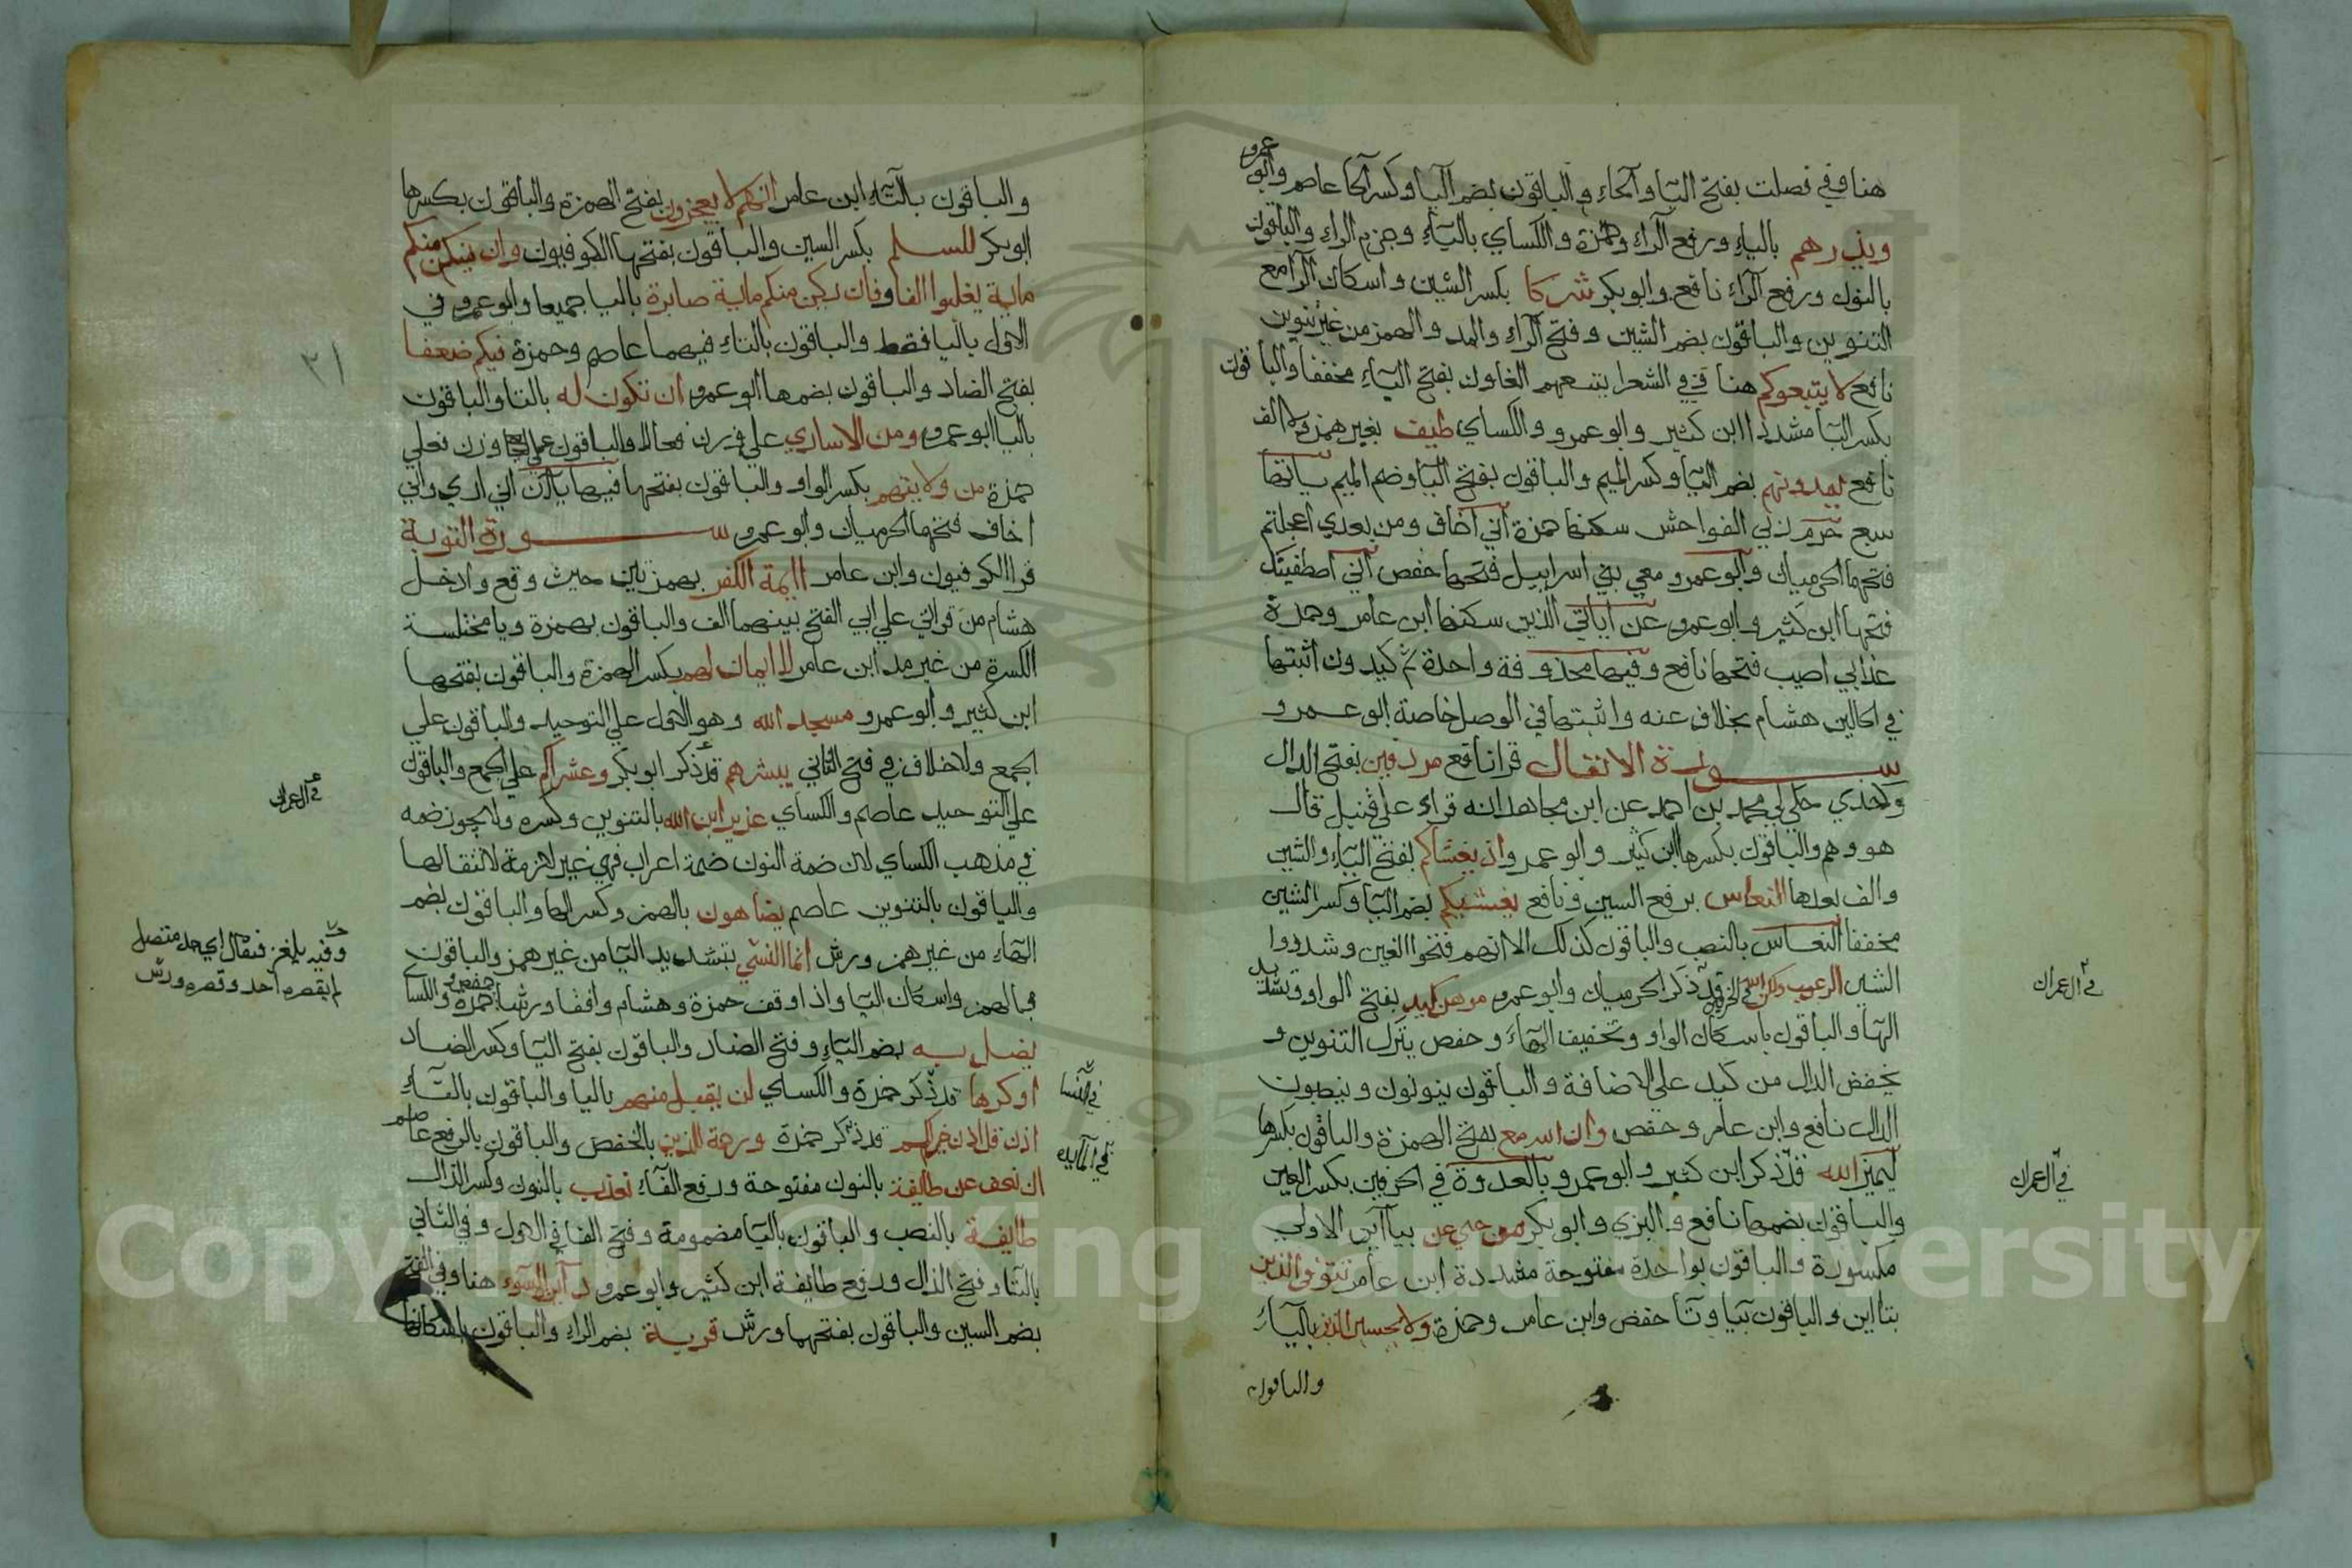 هنا وفي فصلت بفتح اليا والحاء والباقون بضم اليا وكسر الحا عاصم وابو عمرو
ويذرهم بالياء ورفع الراء وحمزة والكساي بالياء وجزم الراء والباقون
بالنون ورفع الراء نافع وابو بكر شركا بكسر الشين واسكان الرا مع
التنوين والباقون بضم الشين وفتح الراء والمد والهمز من غير تنوين
نافع لا يتبعوكم هنا وفي الشعرا يتبعهم الغاون بفتح الباء مخففا والباقون
بكسر البا مشددا ابن كثير وابو عمرو والكساي طيف بغير همز ولا الف
نافع يمدونهم بضم اليا وكسر الميم والباقون بفتح اليا وضم الميم ياءاتها
سبع حرم ربي الفواحش سكنها حمزة اني اخاف ومن بعدي اعجلتم
فتحهما الحرميان وابو عمرو معي بني اسراييل فتحها حفص اني اصطفيتك
فتحها ابن كثير وابو عمرو عن اياتي الذين سكنها ابن عامر وحمزة
عذابي اصيب فتحها نافع وفيها محذوفة واحدة ثم كيدون اثبتها
في الحالين هشام بخلاف عنه واثبتها في الوصل خاصة ابو عمرو
سورة الانفال قرا نافع مردفين بفتح الدال
وكذي حكى لي محمد بن احمد عن ابن مجاهد انه قراء على قنبل قال
هو وهم والباقون بكسرها ابن كثير وابو عمرو اذ يغشاكم بفتح الياء والشين
والف بعدها النعاس برفع السين ونافع يغشيكم بضم اليا وكسر الشين
مخففا النعاس بالنصب والباقون كذلك الا انهم فتحوا الغين وشددوا
الشين الرعب ولكن الله قد ذكر الحرميان وابو عمرو موهن كيد بفتح الواو وتشديد
الها والباقون باسكان الواو وتخفيف الهاء وحفص يترك التنوين و
يخفض الدال من كيد على الاضافة والباقون ينونون وينصبون
الدال نافع وابن عامر وحفص وان الله مع بفتح الهمزة والباقون بكسرها
ليميز الله قد ذكر ابن كثير وابو عمرو بالعدوة في الحرفين بكسر العين
والباقون بضمها نافع والبزي وابو بكر من حي عن بياأين الاولى
مكسورة والباقون بواحدة مفتوحة مشددة ابن عامر تتوفى الذين
بتااين والباقون بيا وتا حفص وابن عامر وحمزة ولا يحسبن الذين بالياء
والباقون
في ال عمران
في ال عمران
والباقون بالتاء ابن عامر انهم لا يعجزون بفتح الهمزة والباقون بكسرها
ابو بكر للسلم بكسر السين والباقون بفتحها الكوفيون وان يكن منكم
ماية يغلبوا الفا وفان يكن منكم ماية صابرة باليا جميعا وابو عمرو في
الاول باليا فقط والباقون بالتاء فيهما عاصم وحمزة فيكم ضعفا
بفتح الضاد والباقون بضمها ابو عمرو ان تكون له بالتا والباقون
باليا ابو عمرو ومن الاساري على وزن فعالى والباقون على وزن فعلي
حمزة من ولايتهم بكسر الواو والباقون بفتحها فيها ياآن اني اري واني
اخاف فتحهما الحرميان وابو عمرو سورة التوبة
قرا الكوفيون وابن عامر اايمة الكفر بهمزتين حيث وقع وادخل
هشام من قراتي على ابي الفتح بينهما الف والباقون بهمزة ويا مختلسة
الكسرة من غير مد ابن عامر لا ايمان لهم بكسر الهمزة والباقون بفتحها
ابن كثير وابو عمرو مسجد الله وهو الاول على التوحيد والباقون على
الجمع ولا خلاف في فتح الثاني يبشرهم قد ذكر ابو بكر وعشيراتكم على الجمع والباقون
على التوحيد عاصم والكساي عزير ابن الله بالتنوين وكسره ولا يجوز ضمه
في مذهب الكساي لان ضمة النون ضمة اعراب فهي غير لازمة لانتقالها
والباقون بالتنوين عاصم يضاهون بالهمز وكسر الها والباقون بضم
الهاء من غير همز ورش انما النسي بتشديد اليا من غير همز والباقون
بالهمز واسكان اليا واذا وقف حمزة وهشام وافقا ورشا حفص وحمزة والكساي
يضل به بضم الياء وفتح الضاد والباقون بفتح اليا وكسر الضاد
او كرها قد ذكر حمزة والكساي ان يقبل منهم باليا والباقون بالتاء
اذن قل اذن خير لكم قد ذكر حمزة ورحمة للذين بالخفض والباقون بالرفع عاصم
ان نعف عن طايفة بالنون مفتوحة ورفع الفاء نعذب بالنون وكسر الذال
طايفة بالنصب والباقون باليا مضمومة وفتح الفا في الاول وفي الثاني
بالتا وفتح الذال ورفع طايفة ابن كثير وابو عمرو دائرة السوء هنا وفي الفتح
بضم السين والباقون بفتحها ورش قربة بضم الراء والباقون باسكانها
٣١
في ال عمران
في النسا
في المايدة
Copyright © King Saud University